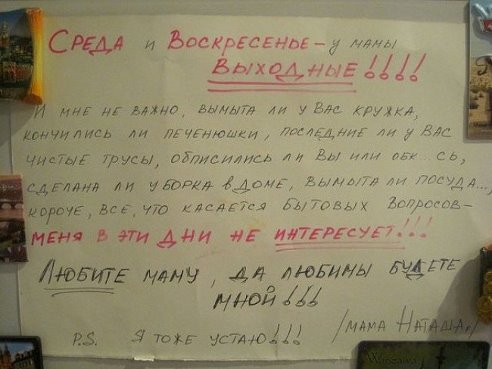 Среда и Воскресенье – у мамы
выходные!!!!
И мне не важно, вымыта ли у вас кружка,
кончились ли печенюшки, последние ли у вас
чистые трусы, обписились ли вы или обк...сь,
сделана ли уборка в доме, вымыта ли посуда...,
короче, все, что касается бытовых вопросов–
меня в эти дни не интересует!!!
Любите маму, да любимы будете
мной!!!
P.S. Я тоже устаю!!! /мама Наташа/